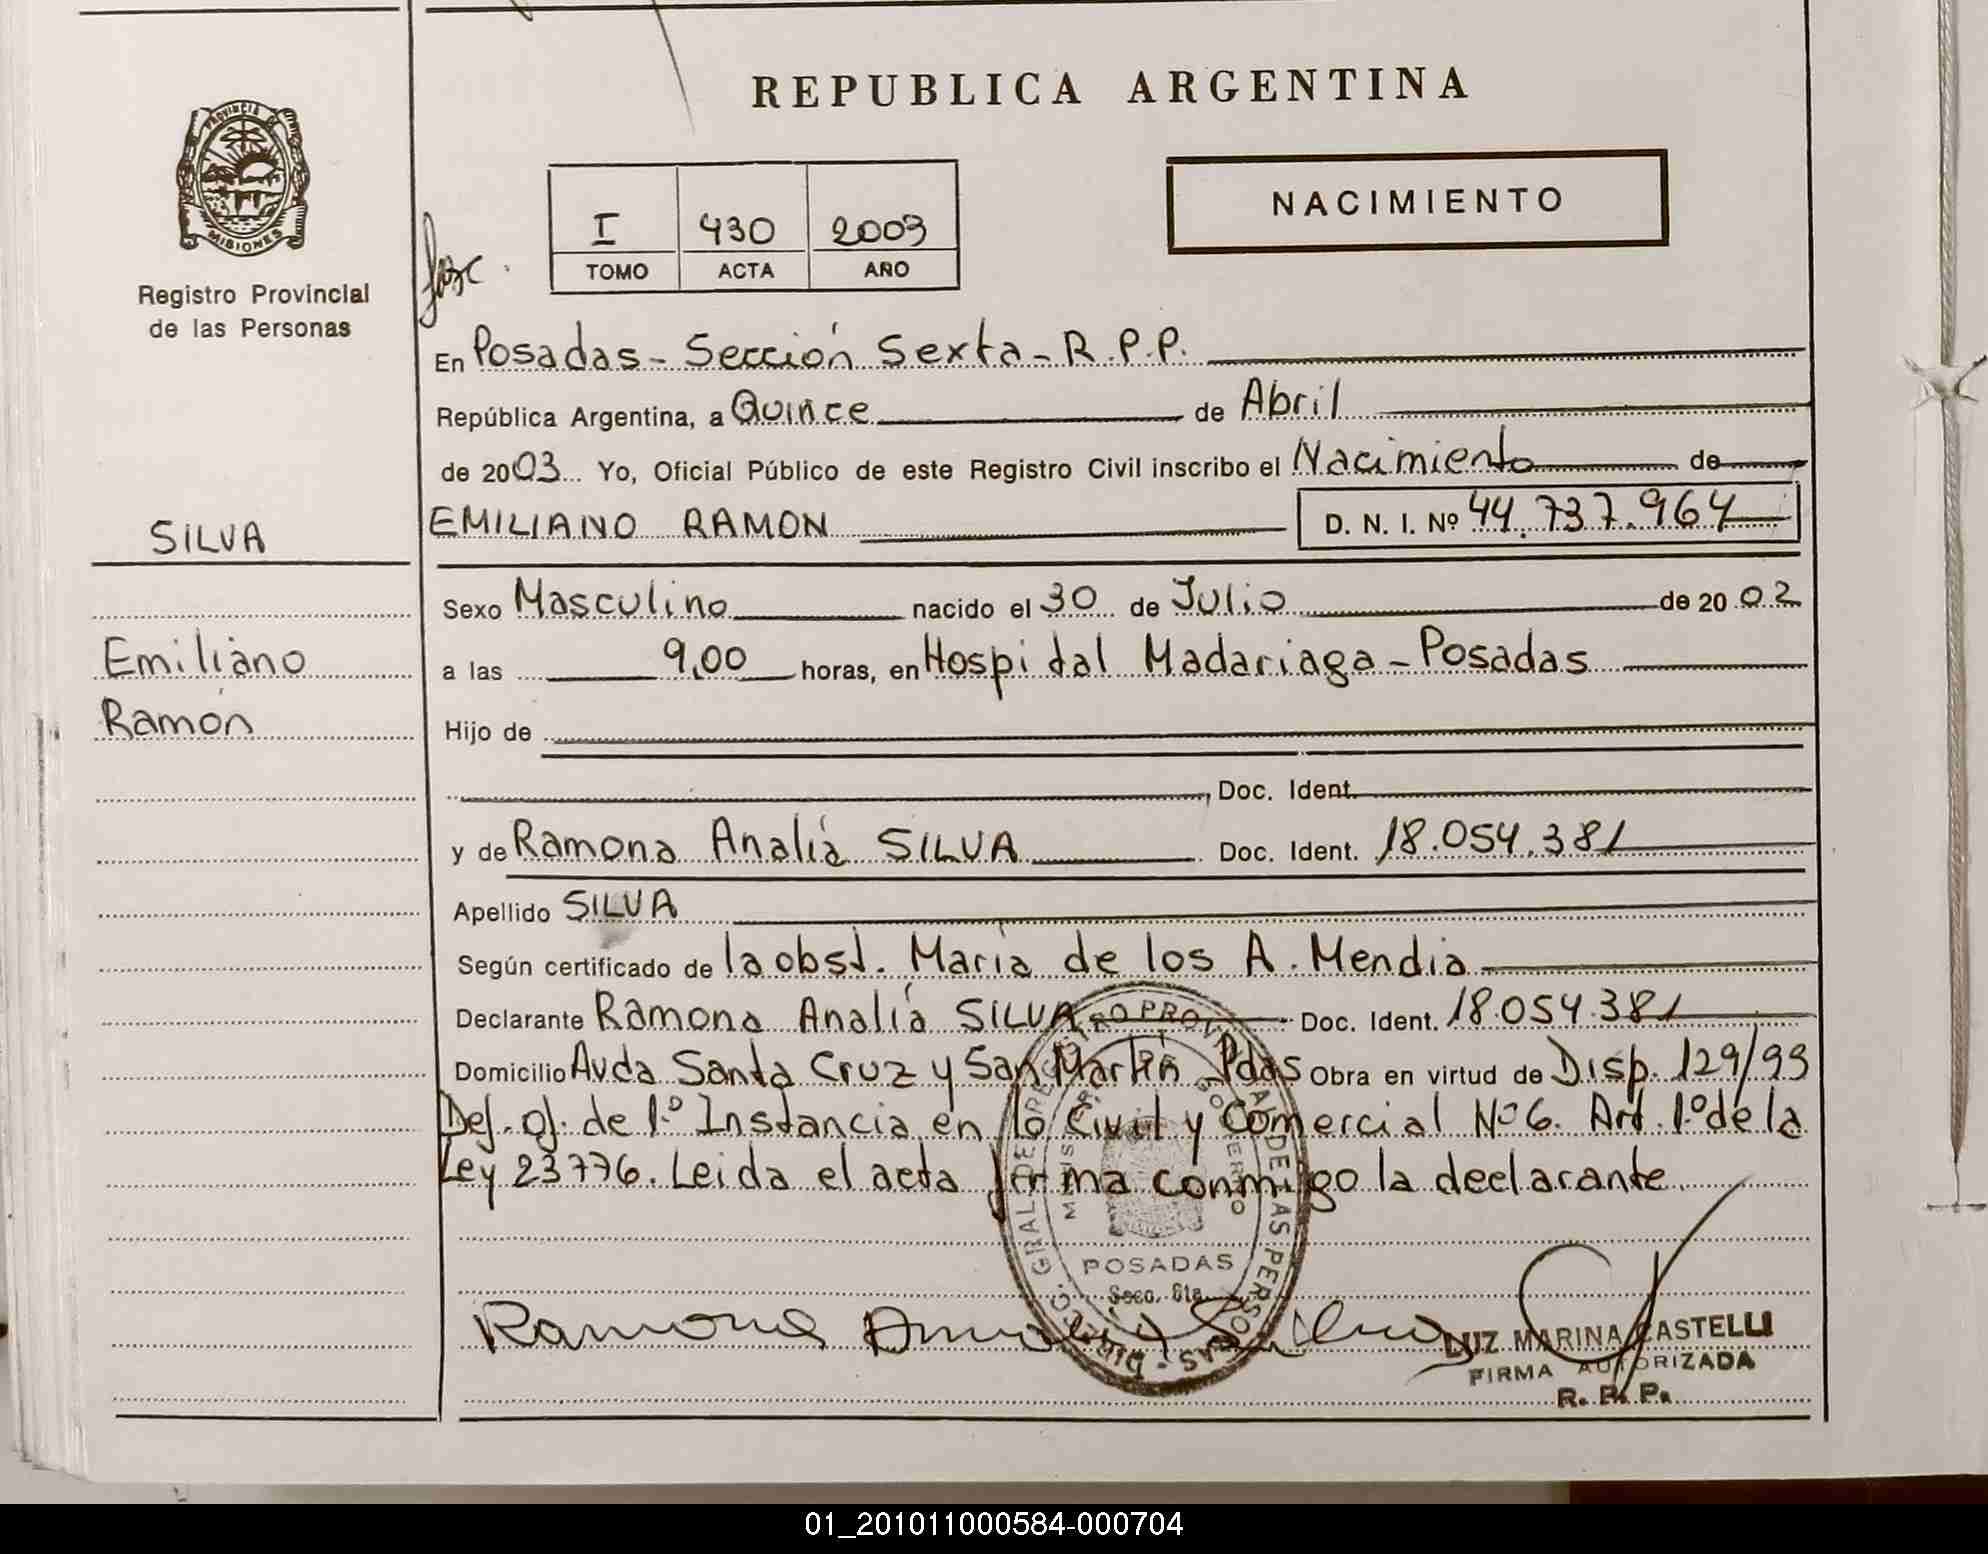 REPUBLICA ARGENTINA
PROVINCIA DE
MISIONES
Registro Provincial
de las Personas
NACIMIENTO
I 430 2003
TOMO ACTA AÑO
En Posadas - Sección Sexta - R.P.P.
República Argentina, a Quince de Abril
de 2003 Yo, Oficial Público de este Registro Civil inscribo el Nacimiento de
SILVA
EMILIANO RAMON D. N. I. Nº 44.737.964
Sexo Masculino nacido el 30 de Julio de 20 02
Emiliano
a las 9,00 horas, en Hospital Madariaga - Posadas
Ramón
Hijo de
, Doc. Ident.
y de Ramona Analía SILVA Doc. Ident. 18.054.381
Apellido SILVA
Según certificado de la obst. María de los A. Mendia
Declarante Ramona Analía SILVA Doc. Ident. 18.054.381
Domicilio Avda Santa Cruz y San Martín Pdas Obra en virtud de Disp. 129/99
Def. of. de 1.º Instancia en lo Civil y Comercial Nº 6. Art. 1.º de la
Ley 23776. Leida el acta firma conmigo la declarante.
POSADAS
Secc. 6ta.
Ramona Silva
LUZ MARINA CASTELLI
FIRMA AUTORIZADA
R. P. P.
01_201011000584-000704